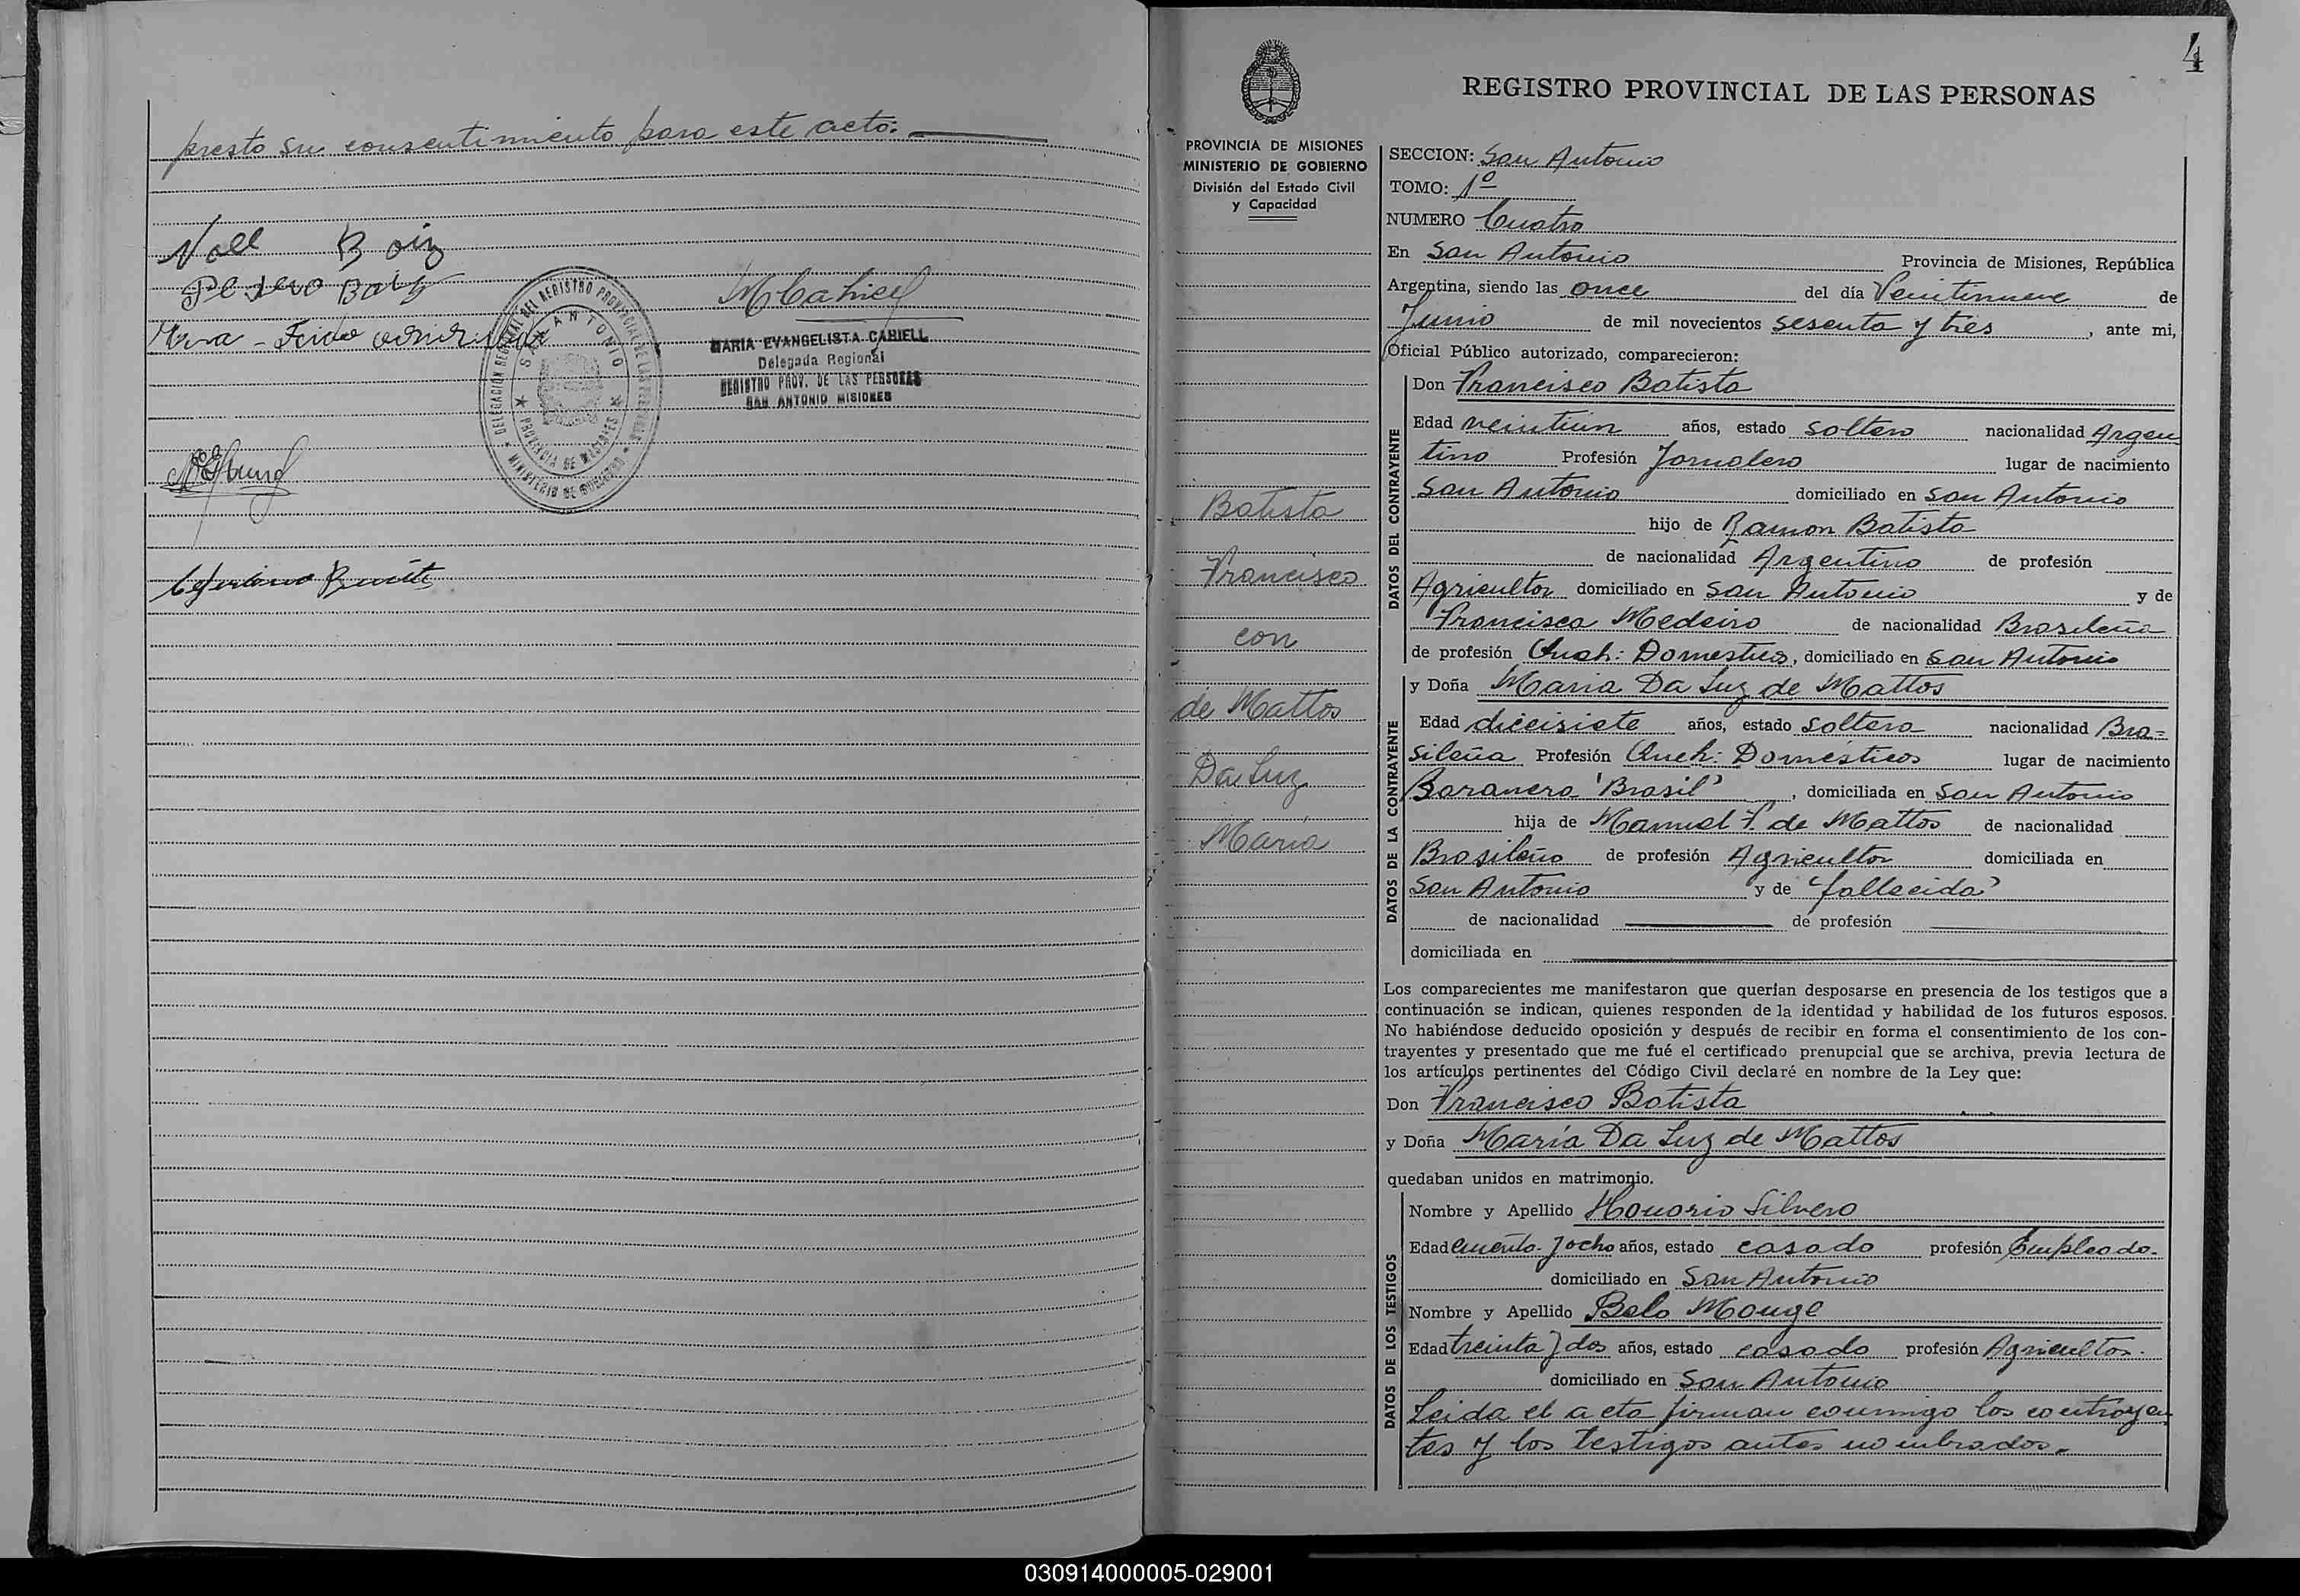 presto su consentimiento para este acto.
Noll Boiz
Pedro Boiz
MARIA EVANGELISTA CARIELL
Delegada Regional
REGISTRO PROV. DE LAS PERSONAS
SAN ANTONIO MISIONES
DELEGACIÓN REGIONAL DEL REGISTRO PROVINCIAL DE LAS PERSONAS
SAN ANTONIO
PROVINCIA DE MISIONES
MINISTERIO DE GOBIERNO
4
REGISTRO PROVINCIAL DE LAS PERSONAS
PROVINCIA DE MISIONES
MINISTERIO DE GOBIERNO
División del Estado Civil
y Capacidad
Batista
Francisco
con
de Mattos
Da Luz
María
SECCION: San Antonio
TOMO: 1º
NUMERO Cuatro
En San Antonio Provincia de Misiones, República
Argentina, siendo las once del día Veintinueve de
Junio de mil novecientos sesenta y tres, ante mi,
Oficial Público autorizado, comparecieron:
DATOS DEL CONTRAYENTE
Don Francisco Batista
Edad veintiun años, estado soltero nacionalidad Argen
tino Profesión Jornalero lugar de nacimiento
San Antonio domiciliado en San Antonio
hijo de Ramon Batista
de nacionalidad Argentino de profesión
Agricultor domiciliado en San Antonio y de
Francisca Medeiro de nacionalidad Brasileña
de profesión Queh: Domesticos, domiciliado en San Antonio
DATOS DE LA CONTRAYENTE
y Doña Maria Da Luz de Mattos
Edad diecisiete años, estado soltera nacionalidad Bra=
sileña Profesión Queh: Domésticos lugar de nacimiento
Baranero "Brasil", domiciliada en San Antonio
hija de Manuel F. de Mattos de nacionalidad
Brasileño de profesión Agricultor domiciliada en
San Antonio y de "fallecida"
de nacionalidad de profesión
domiciliada en
Los comparecientes me manifestaron que querían desposarse en presencia de los testigos que a
continuación se indican, quienes responden de la identidad y habilidad de los futuros esposos.
No habiéndose deducido oposición y después de recibir en forma el consentimiento de los con-
trayentes y presentado que me fué el certificado prenupcial que se archiva, previa lectura de
los artículos pertinentes del Código Civil declaré en nombre de la Ley que:
Don Francisco Batista
y Doña María Da Luz de Mattos
quedaban unidos en matrimonio.
DATOS DE LOS TESTIGOS
Nombre y Apellido Honorio Silvero
Edad cuenta y ocho años, estado casado profesión Empleado.
domiciliado en San Antonio
Nombre y Apellido Belo Monge
Edad treinta y dos años, estado casado profesión Agricultor.
domiciliado en San Antonio
Leida el acta firman conmigo los contrayen
tes y los testigos antes nombrados.
030914000005-029001